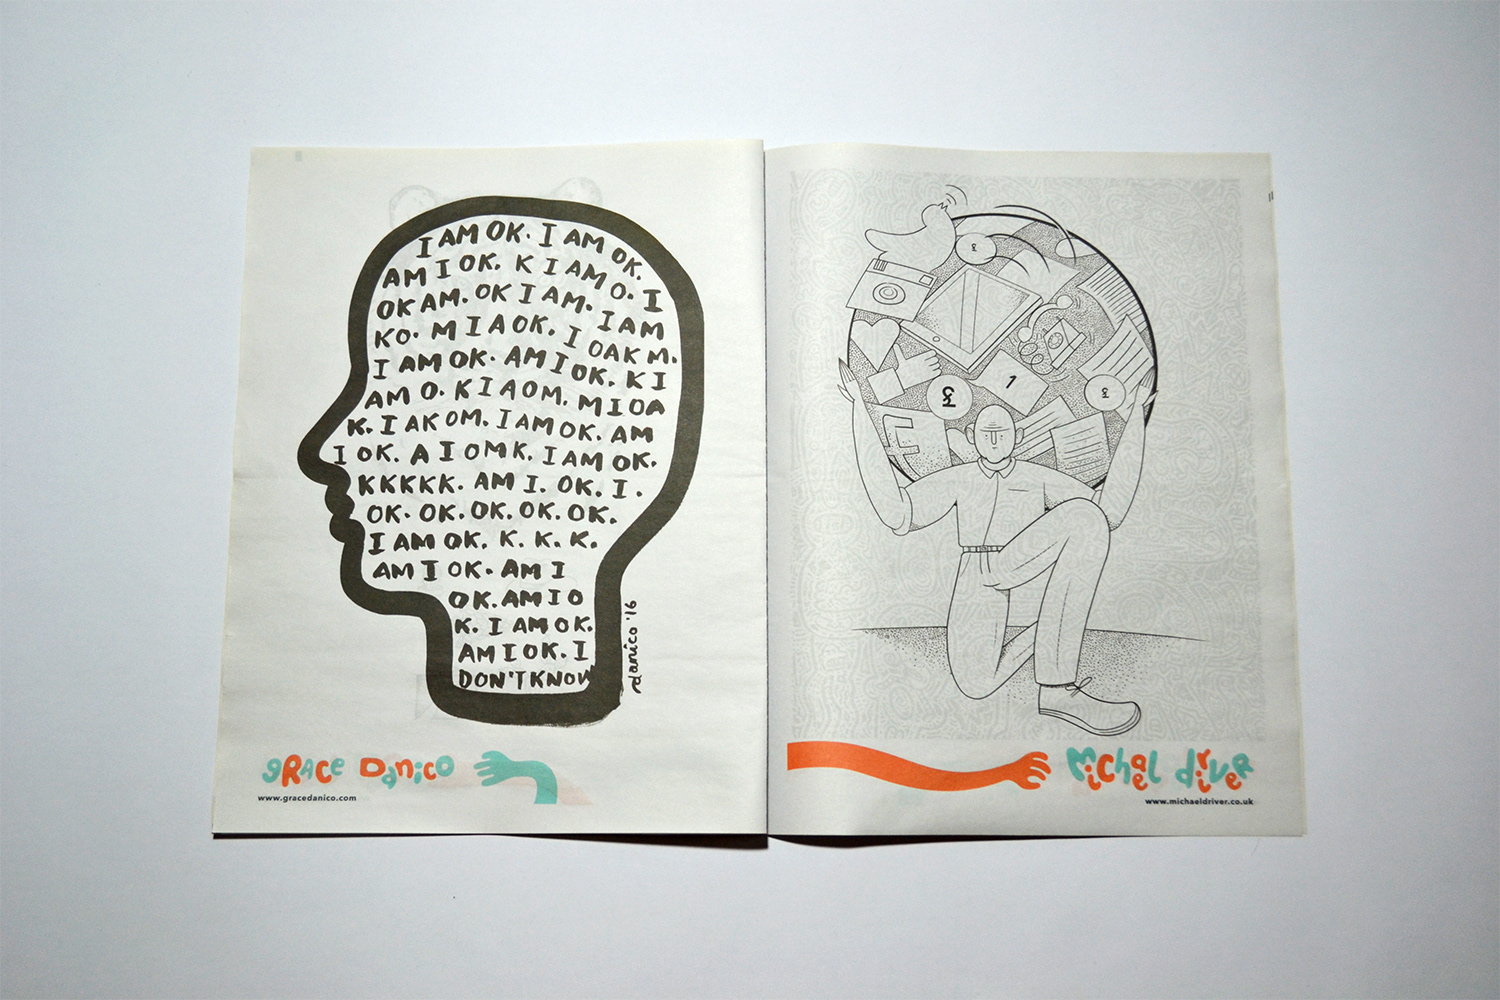 I AM OK. I AM OK.
AM I OK. K I AM O. I
OK AM. OK I AM. I AM
KO. M I A OK. I OAK M.
I AM OK. AM I OK. K I
AM O. K I A O M. M I O A
K. I AK OM. I AM OK. AM
I OK. A I O M K. I AM OK.
KKKKK. AM I. OK. I.
OK. OK. OK. OK. OK.
I AM OK. K. K. K.
AM I OK. AM I
OK. AM I O
K. I AM OK.
AM I OK. I
DON'T KNOW
danico '16
gRAce Danico
www.gracedanico.com
£
£
1
£
£
Michael driver
www.michaeldriver.co.uk